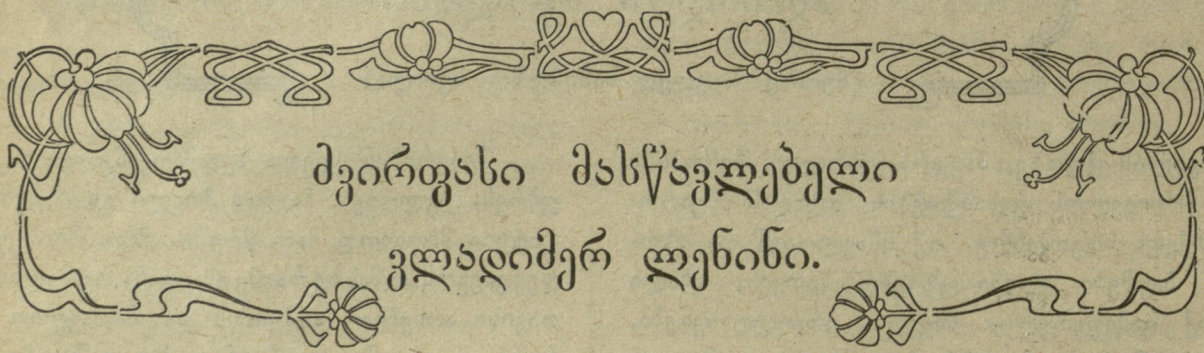 ძვირფასი მასწავლებელი
ვლადიმერ ლენინი.